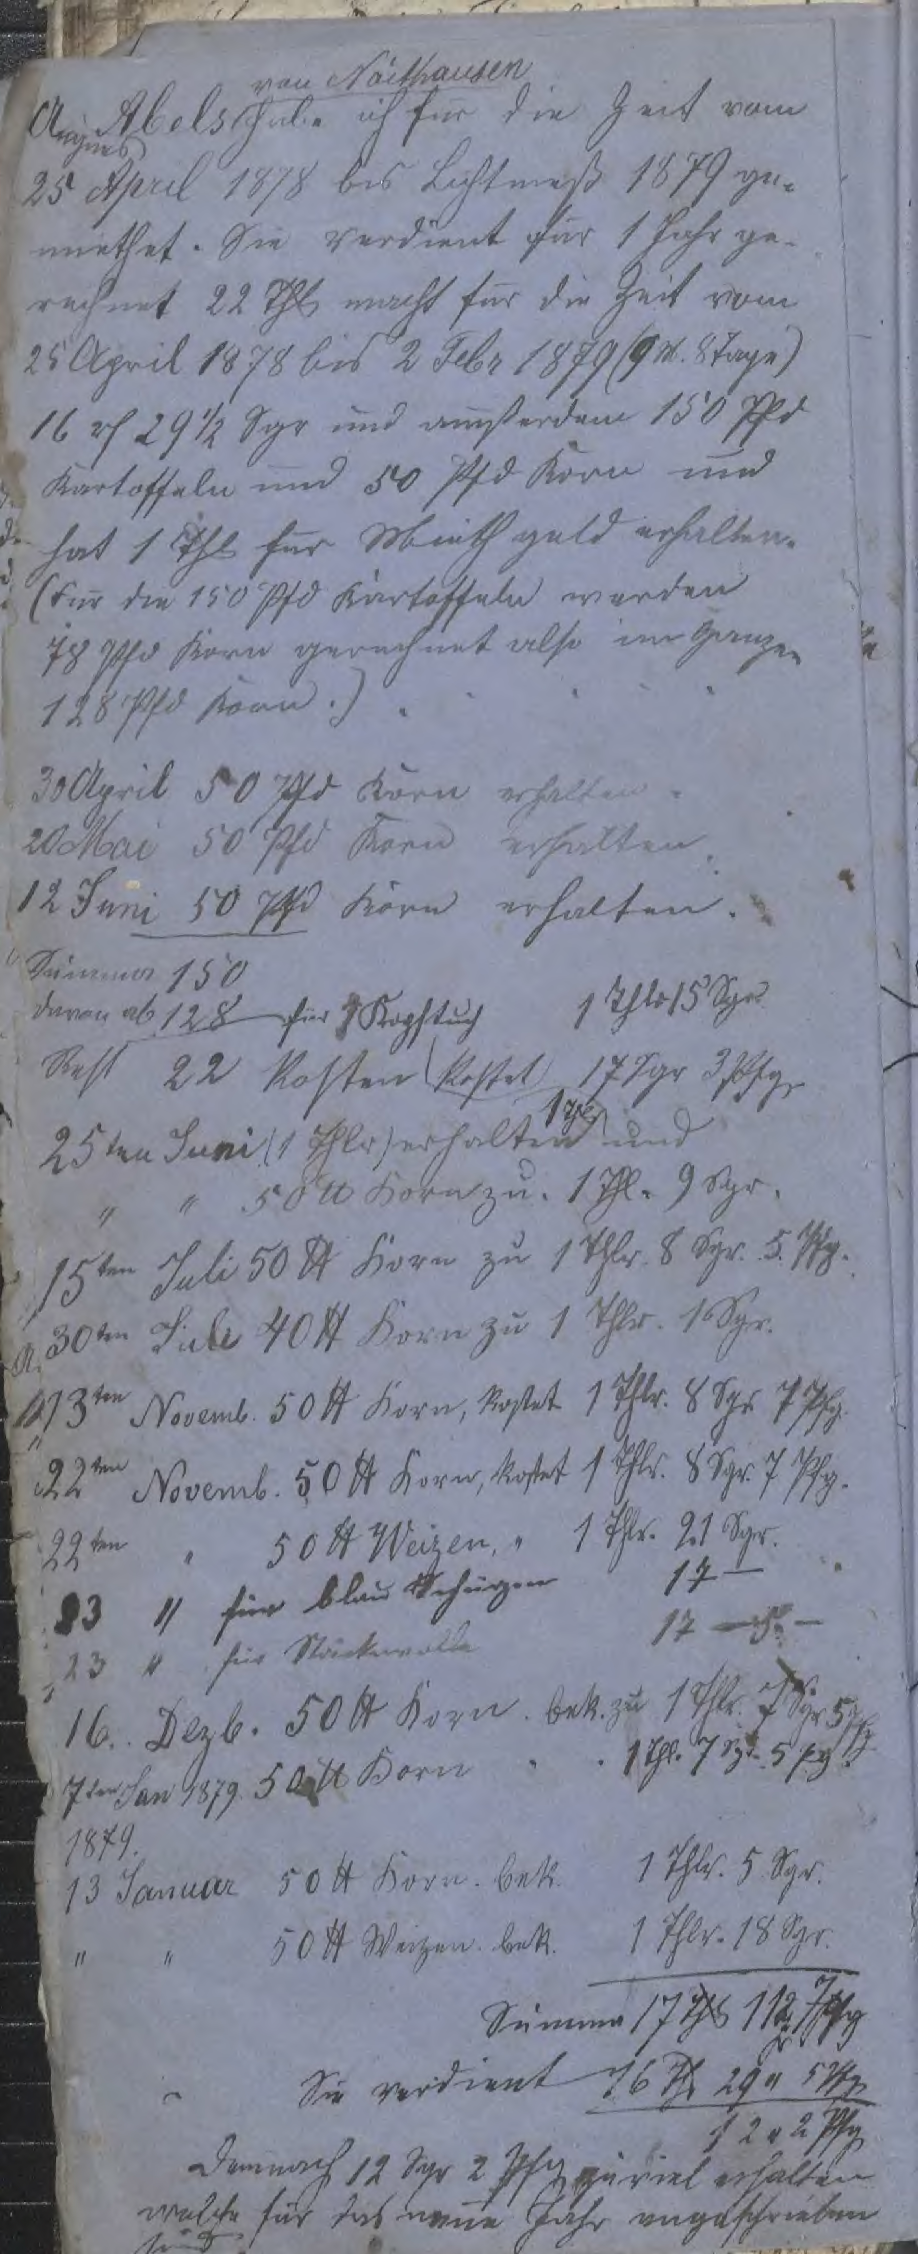 von Nöithausen
Agnes Abels habe ich für die Zeit vom
25 April 1878 bis Lichtmeß 1879 ge-
miethet. Sie verdient für 1 Jahr ge-
rechnet 22 Thl macht für die Zeit vom
25 April 1878 bis 2 Febr 1879 (9 M. 8 Tage)
16 rf 29 1/2 Sgr und ausserdem 150 Pfd
Kartoffeln und 50 Pfd Korn und
hat 1 Thl für Mieth geld erhalten.
(Für die 150 Pfd Kartoffeln werden
78 Pfd Korn gerechnet also im Ganzen
128 Pfd Korn.)
30 April 50 Pfd Korn erhalten.
20 Mai 50 Pfd Korn erhalten.
12 Juni 50 Pfd Korn erhalten.
Summa 150
davon ab 128 für 1 Kopftuch 1 Thlr 15 Sgr.
Rest 22 Kosten (Kostet) 17 Sgr 3 Pfg
25ten Juni (1 Thlr) erhalten 1 Thl und
" " 50 ℔ Korn zu. 1 Thl. 9 Sgr.
15ten Juli 50 ℔ Korn zu 1 Thlr. 8 Sgr. 5. Pfg.
30ten Juli 40 ℔ Korn zu 1 Thlr. 1 Sgr.
13ten Novemb. 50 ℔ Korn, kostet 1 Thlr. 8 Sgr 7 Pfg.
22ten Novemb. 50 ℔ Korn, kostet 1 Thlr. 8 Sgr. 7 Pfg.
22ten " 50 ℔ Weizen, " 1 Thlr. 21 Sgr.
23 " für blau Schürzen 17 —
23 " für 17 —
16. Dezb. 50 ℔ Korn. bek. zu 1 Thlr. 7 Sgr. 5 Pfg
7ten Jan 1879. 50 ℔ Korn " " 1 Thl. 7 Sgr. 5 Pfg.
1879.
13 Januar 50 ℔ Korn. bek. 1 Thlr. 5 Sgr.
" " 50 ℔ Weizen. bek. 1 Thlr. 18 Sgr.
Summa 17 Thl 11 7 Pfg
Sie verdient 16 Thl 29 " 5 Pfg
12 " 2 Pfg
Demnach 12 Sgr 2 Pfg zuviel erhalten
welche für das neue Jahr angeschrieben
sind